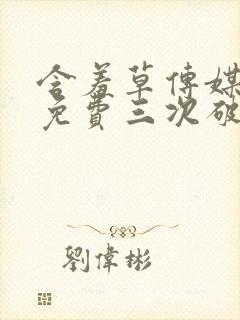 含羞草傳媒
免費三次破
劉偉彬